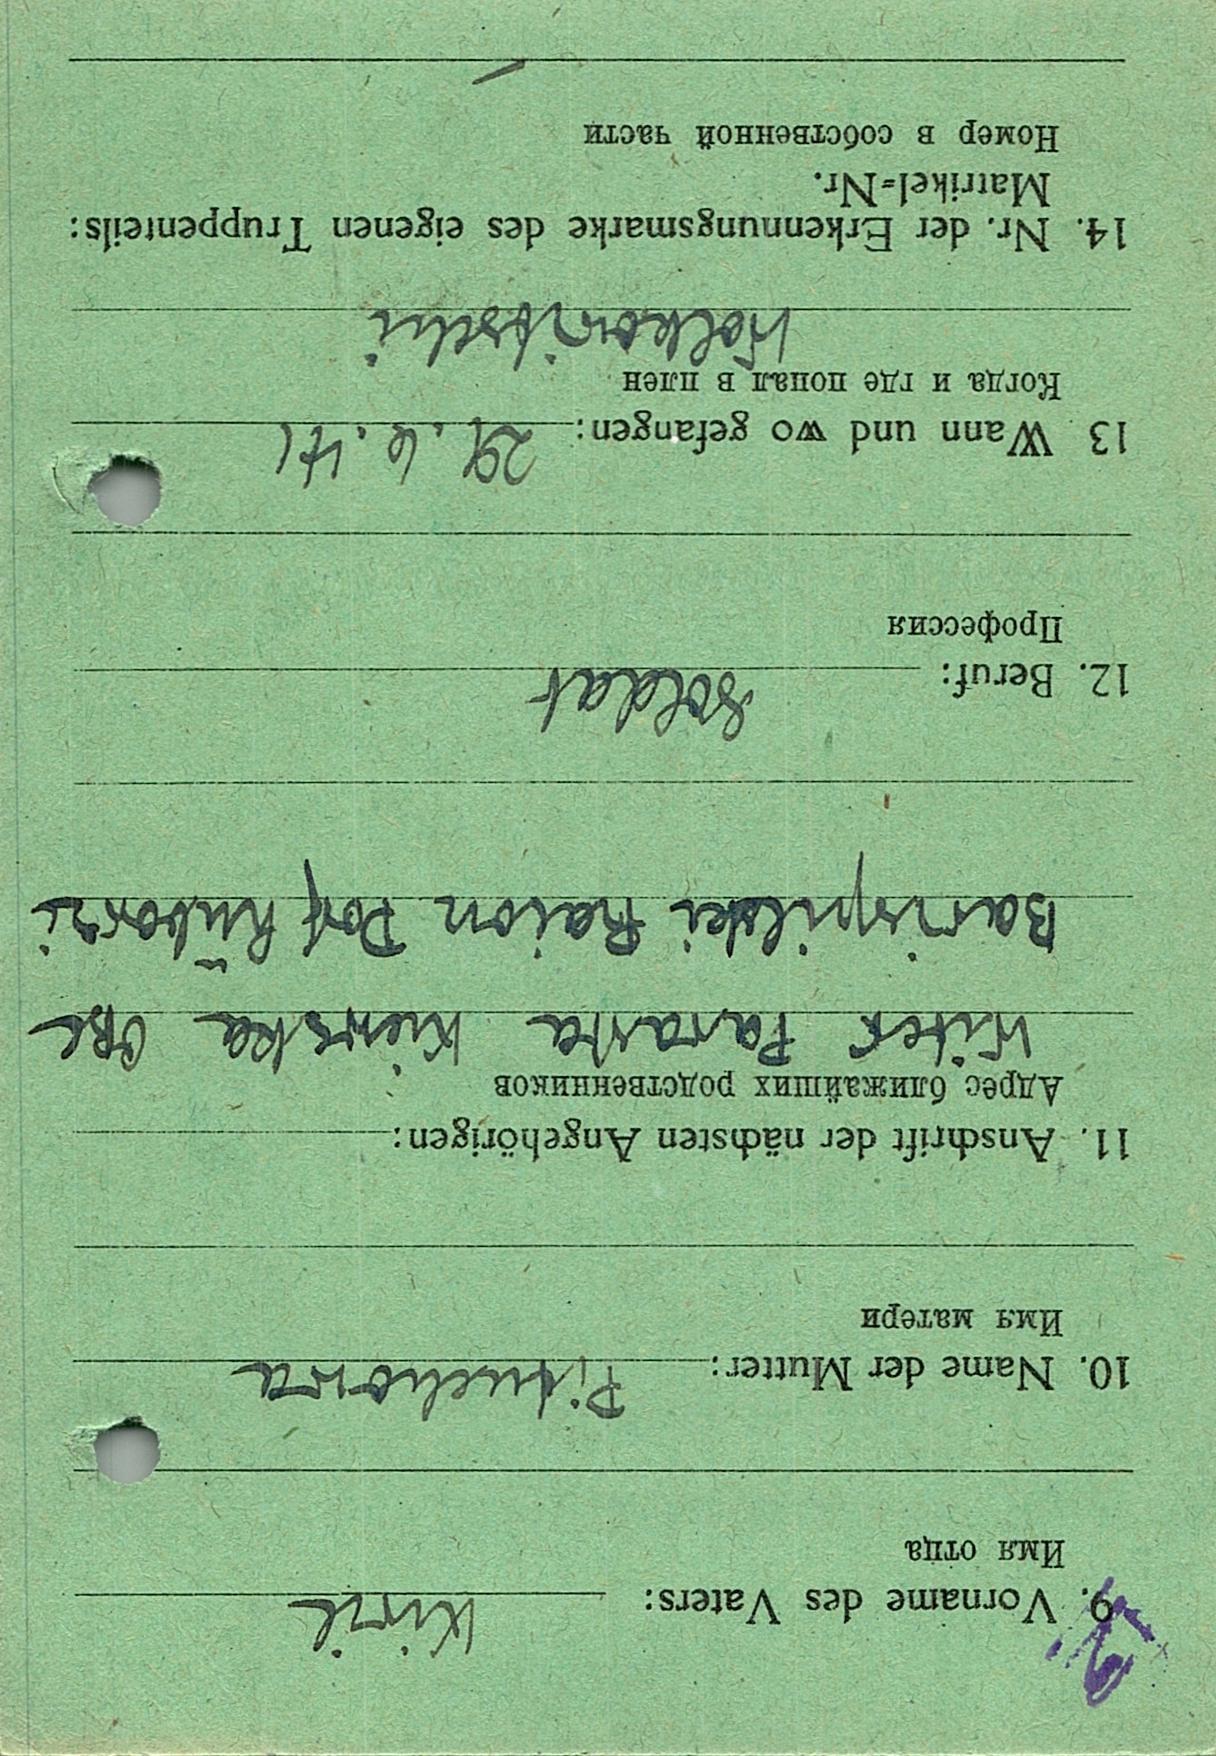 9. Vorname des Vaters: Kiril
Имя отца
10. Name der Mutter: Pituchowa
Имя матери
11. Anschrift der nächsten Angehörigen:
Адрес ближайших родственников
Parasta Kiewska OBL
Barispilski Raion Dorf
12. Beruf: Soldat
Профессия
13 Wann und wo gefangen: 29.6.41
Когда и где попал в плен
Wolkowitschi
14. Nr. der Erkennungsmarke des eigenen Truppenteils:
Matrikel=Nr.
Номер в собственной части
—